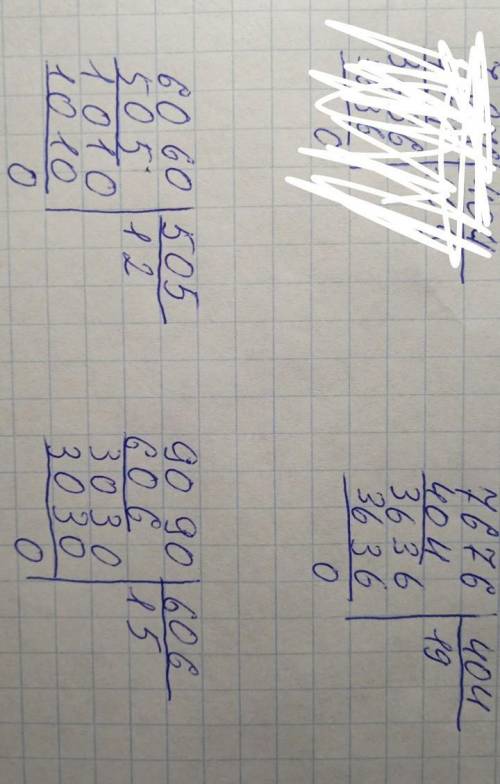 7676 | 404
404 | 19
3636
3636
0
6060 | 505
505 | 12
1010
1010
0
9090 | 606
606 | 15
3030
3030
0